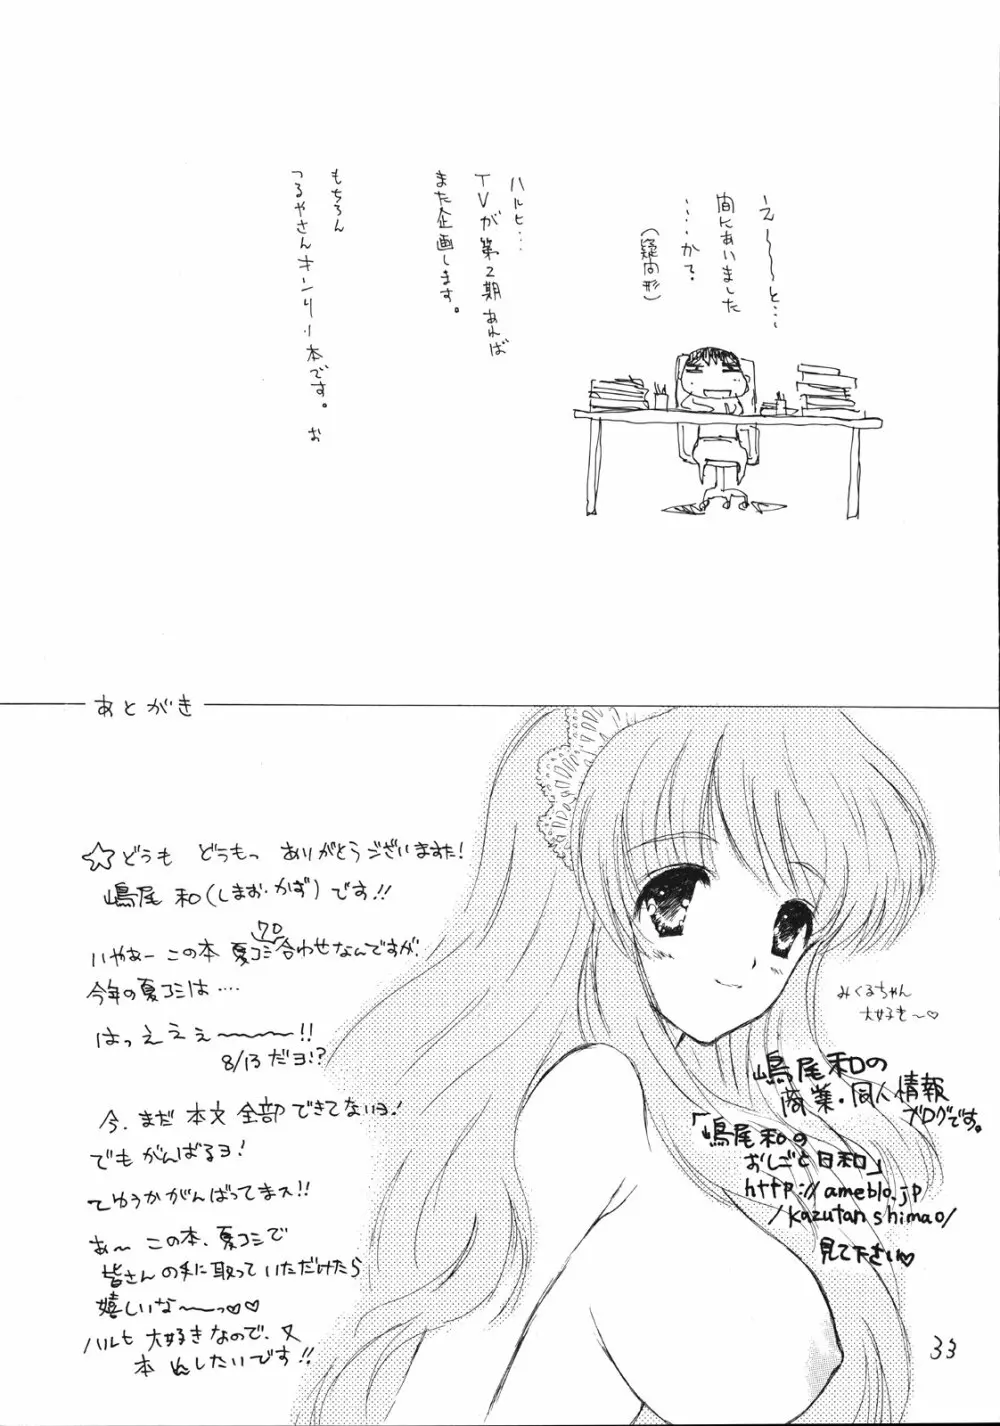 えーーーと…
間にあいました
……か?
(疑問形)
ハルヒ…
TVが第2期あれば
また企画します。
もちろん
つるやさんオンリー本です。 お
あとがき
☆どうも どうもっ ありがとうございますた!
嶋尾 和(しまお・かず)です!!
いやぁー この本 夏コミ合わせなんですが、
今年の夏コミは……
はっえぇぇ〜〜〜〜!!
8/13だヨ!?
今、まだ 本文 全部 できてないヨ!
でも がんばるヨ!
てゆうか がんばってまス!!
あ〜 この本、夏コミで
皆さんの手に取っていただけたら
嬉しいな〜〜っ♡♡
ハルヒ 大好きなので、又
本 したいです!!
みくるちゃん
大好き〜♡
嶋尾和の
商業・同人情報
ブログです。
「嶋尾和の
おしごと日和」
http://ameblo.jp
/kazutanshimao/
見て下さい♡
33